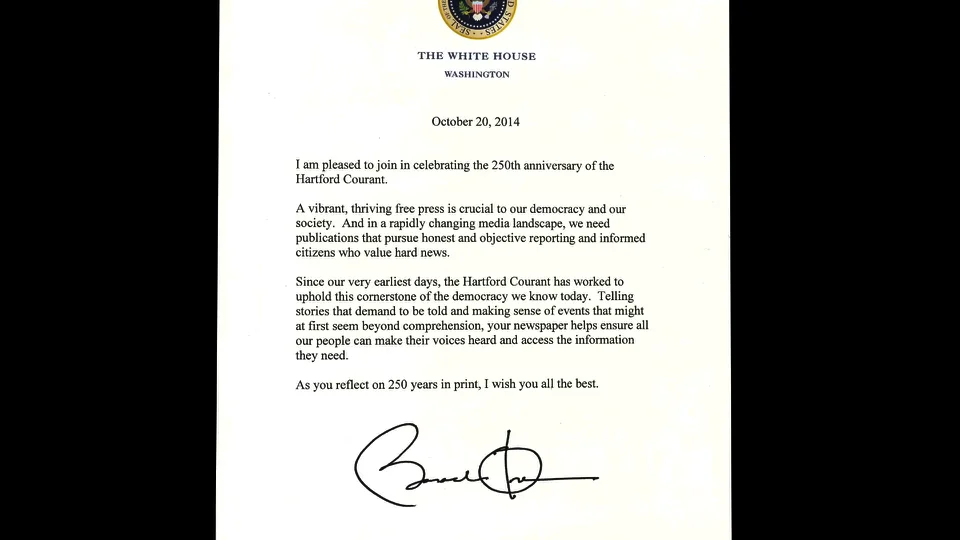 SEAL OF THE
D STATES
THE WHITE HOUSE
WASHINGTON
October 20, 2014
I am pleased to join in celebrating the 250th anniversary of the
Hartford Courant.
A vibrant, thriving free press is crucial to our democracy and our
society. And in a rapidly changing media landscape, we need
publications that pursue honest and objective reporting and informed
citizens who value hard news.
Since our very earliest days, the Hartford Courant has worked to
uphold this cornerstone of the democracy we know today. Telling
stories that demand to be told and making sense of events that might
at first seem beyond comprehension, your newspaper helps ensure all
our people can make their voices heard and access the information
they need.
As you reflect on 250 years in print, I wish you all the best.